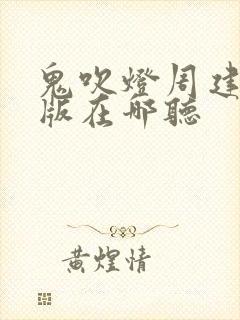 鬼吹燈周建
版在哪聽
黄煌情